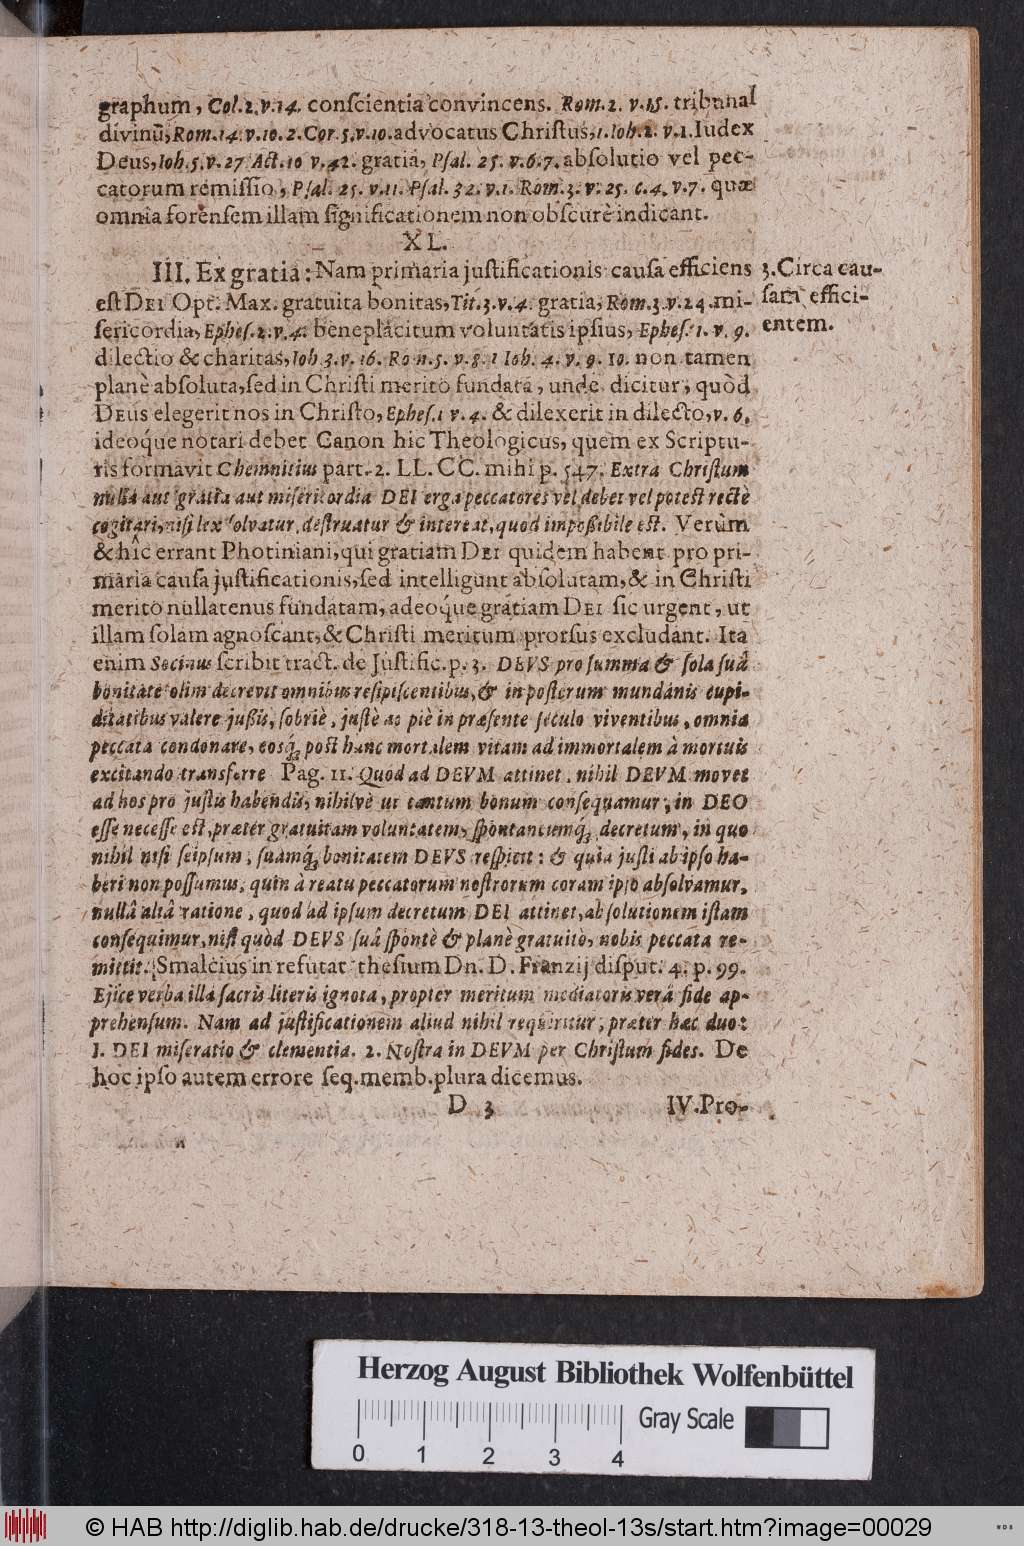 graphum, Col.2.v.14. conſcientia convincens. Rom. 2. v.15. tribunal
divinū, Rom.14.v.10. 2.Cor.5.v.10. advocatus Chriſtus, 1.Ioh.2. v.1. Iudex
Deus, Ioh.5.v.27 Act.10 v.42. gratia, Pſal. 25. v.6.7. abſolutio vel pec-
catorum remiſſio, Pſal. 25. v.11. Pſal. 32. v.1. Rom.3. v. 25. c.4. v.7. quæ
omnia forenſem illam ſignificationem non obſcurè indicant.
XL.
III. Ex gratia: Nam primaria juſtificationis cauſa efficiens
eſt DEI Opt. Max. gratuita bonitas, Tit.3.v.4. gratia, Rom.3.v.24. mi-
ſericordia, Epheſ.2.v.4. beneplacitum voluntatis ipſius, Epheſ. 1. v. 9.
dilectio & charitas, Ioh 3.v.16. Rom.5. v.8. 1 Ioh. 4. v. 9. 10. non tamen
planè abſoluta, ſed in Chriſti merito fundata, unde dicitur, quòd
DEus elegerit nos in Chriſto, Epheſ.1 v.4. & dilexerit in dilecto, v. 6.
ideoq́ue notari debet Canon hic Theologicus, quem ex Scriptu-
ris formavit Chemnitius part. 2. LL. CC. mihi p. 547. Extra Chriſtum
nulla aut gratia aut miſericordia DEI erga peccatores vel debet vel poteſt rectè
cogitari, niſi lex ſolvatur, deſtruatur & intereat, quod impoßibile eſt. Verùm
& hîc errant Photiniani, qui gratiam DEI quidem habent pro pri-
maria cauſa juſtificationis, ſed intelligunt abſolutam, & in Chriſti
merito nullatenus fundatam, adeoq́ue gratiam DEI ſic urgent, ut
illam ſolam agnoſcant, & Chriſti meritum prorſus excludant. Ita
enim Socinus ſcribit tract. de Juſtific. p. 3. DEUS pro ſumma & ſola ſuâ
bonitate olim decrevit omnibus reſipiſcentibus, & in poſterum mundanis cupi-
ditatibus valere jußis, ſobriè, juſtè ac piè in præſente ſeculo viventibus, omnia
peccata condonare, eosq́; poſt hanc mortalem vitam ad immortalem à mortuis
excitando transferre Pag. 11. Quod ad DEVM attinet, nihil DEVM movet
ad hos pro juſtis habendis, nihilvè ut tantum bonum conſequamur, in DEO
eſſe neceſſe eſt, præter gratuitam voluntatem, ſpontaneumq́; decretum, in quo
nihil niſi ſeipſum, ſuamq́; bonitatem DEVS reſpicit: & quia juſti ab ipſo ha-
beri non poſſumus, quin à reatu peccatorum noſtrorum coram ipſo abſolvamur,
nullâ aliâ ratione, quod ad ipſum decretum DEI attinet, abſolutionem iſtam
conſequimur, niſi quòd DEVS ſuâ ſpontè & planè gratuitò, nobis peccata re-
mittit. Smalcius in refutat theſium Dn. D. Franzij diſput. 4. p. 99.
Ejice verba illa ſacris literis ignota, propter meritum mediatoris verâ fide ap-
prehenſum. Nam ad juſtificationem aliud nihil requiritur, præter hæc duo:
1. DEI miſeratio & clementia. 2. Noſtra in DEVM per Chriſtum fides. De
hoc ipſo autem errore ſeq. memb. plura dicemus.
D 3 IV. Pro-
3. Circa cau-
ſam effici-
entem.
Herzog August Bibliothek Wolfenbüttel
Gray Scale
0 1 2 3 4
© HAB http://diglib.hab.de/drucke/318-13-theol-13s/start.htm?image=00029